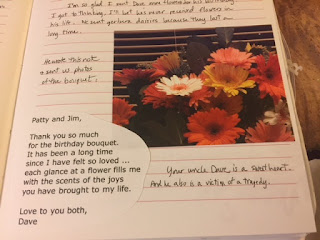 I'm so glad I sent Dave some flowers for his birthday.
I got to thinking, I'll bet he's never received flowers in
his life. He sent gerbera daisies because they last a
long time.
He wrote this note
& sent w. photos
of the bouquet.
Patty and Jim,
Thank you so much
for the birthday bouquet.
It has been a long time
since I have felt so loved ...
each glance at a flower fills me
with the scents of the joys
you have brought to my life.
Love to you both,
Dave
Your uncle Dave is a sweetheart.
And he also is a victim of a tragedy.